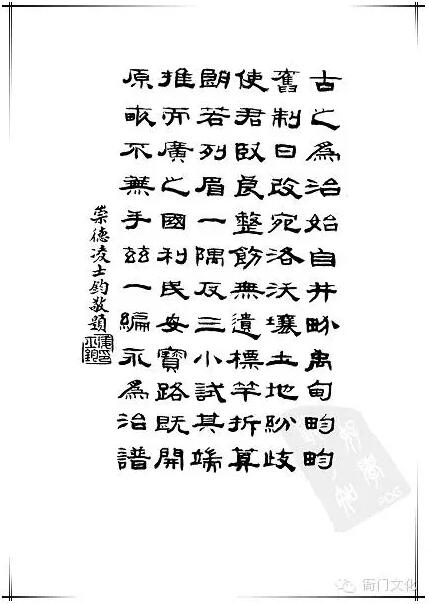 古之為治始自井畍禹甸畇畇
舊制日改宛洛沃壤土地紛歧
使君臤良整飭無遺標竿折算
朙若列眉一隅反三小試其端
推而廣之國利民安寶路既開
原畞不蕪手茲一編永為治譜
崇德凌士鈞敬題
PDG
衙门文化